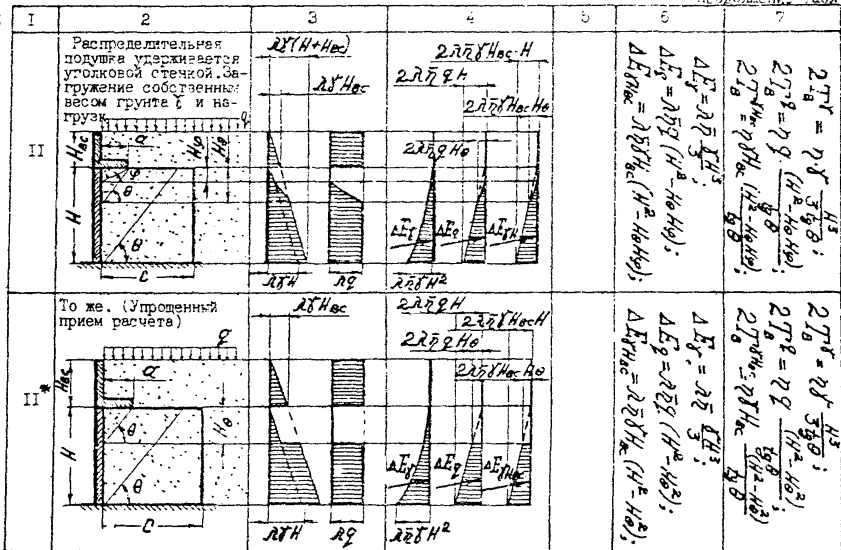 I 2 3 4 5 6 7
II
Распределительная
подушка удерживается
уголковой стечкой. За-
гружение собственным
весом грунта γ и на-
грузк
q
a
Hвс
Hφ
Hθ
φ
θ
H
θ
C
λγ(H+Hвс)
λγHвс
λγH
λq
2λη̄γHвс·H
2λη̄qH
2λη̄γHвсHθ
2λη̄qHθ
ΔEγ
ΔEq
ΔEγH
λη̄γH²
ΔEγ = λη̄ γH³/3;
ΔEq = λη̄q (H²-HθHφ);
ΔEγHвс = λη̄γHвс (H²-HθHφ);
2Tвγ = ηγ H³/3tgθ;
2Tвq = ηq (H²-HθHφ)/tgθ;
2TвγHвс = ηγHвс (H²-HθHφ)/tgθ;
II*
То же. (Упрощенный
прием расчета)
q
a
Hвс
θ
Hθ
H
θ
C
λγHвс
λγH
λq
2λη̄qH
2λη̄γHвсH
2λη̄qHθ
2λη̄γHвсHθ
ΔEγ
ΔEq
ΔEγHвс
λη̄γH²
ΔEγ = λη̄ γH³/3;
ΔEq = λη̄q (H²-Hθ²);
ΔEγHвс = λη̄γHвс (H²-Hθ²);
2Tвγ = ηγ H³/3tgθ;
2Tвq = ηq (H²-Hθ²)/tgθ;
2TвγHвс = ηγHвс (H²-Hθ²)/tgθ